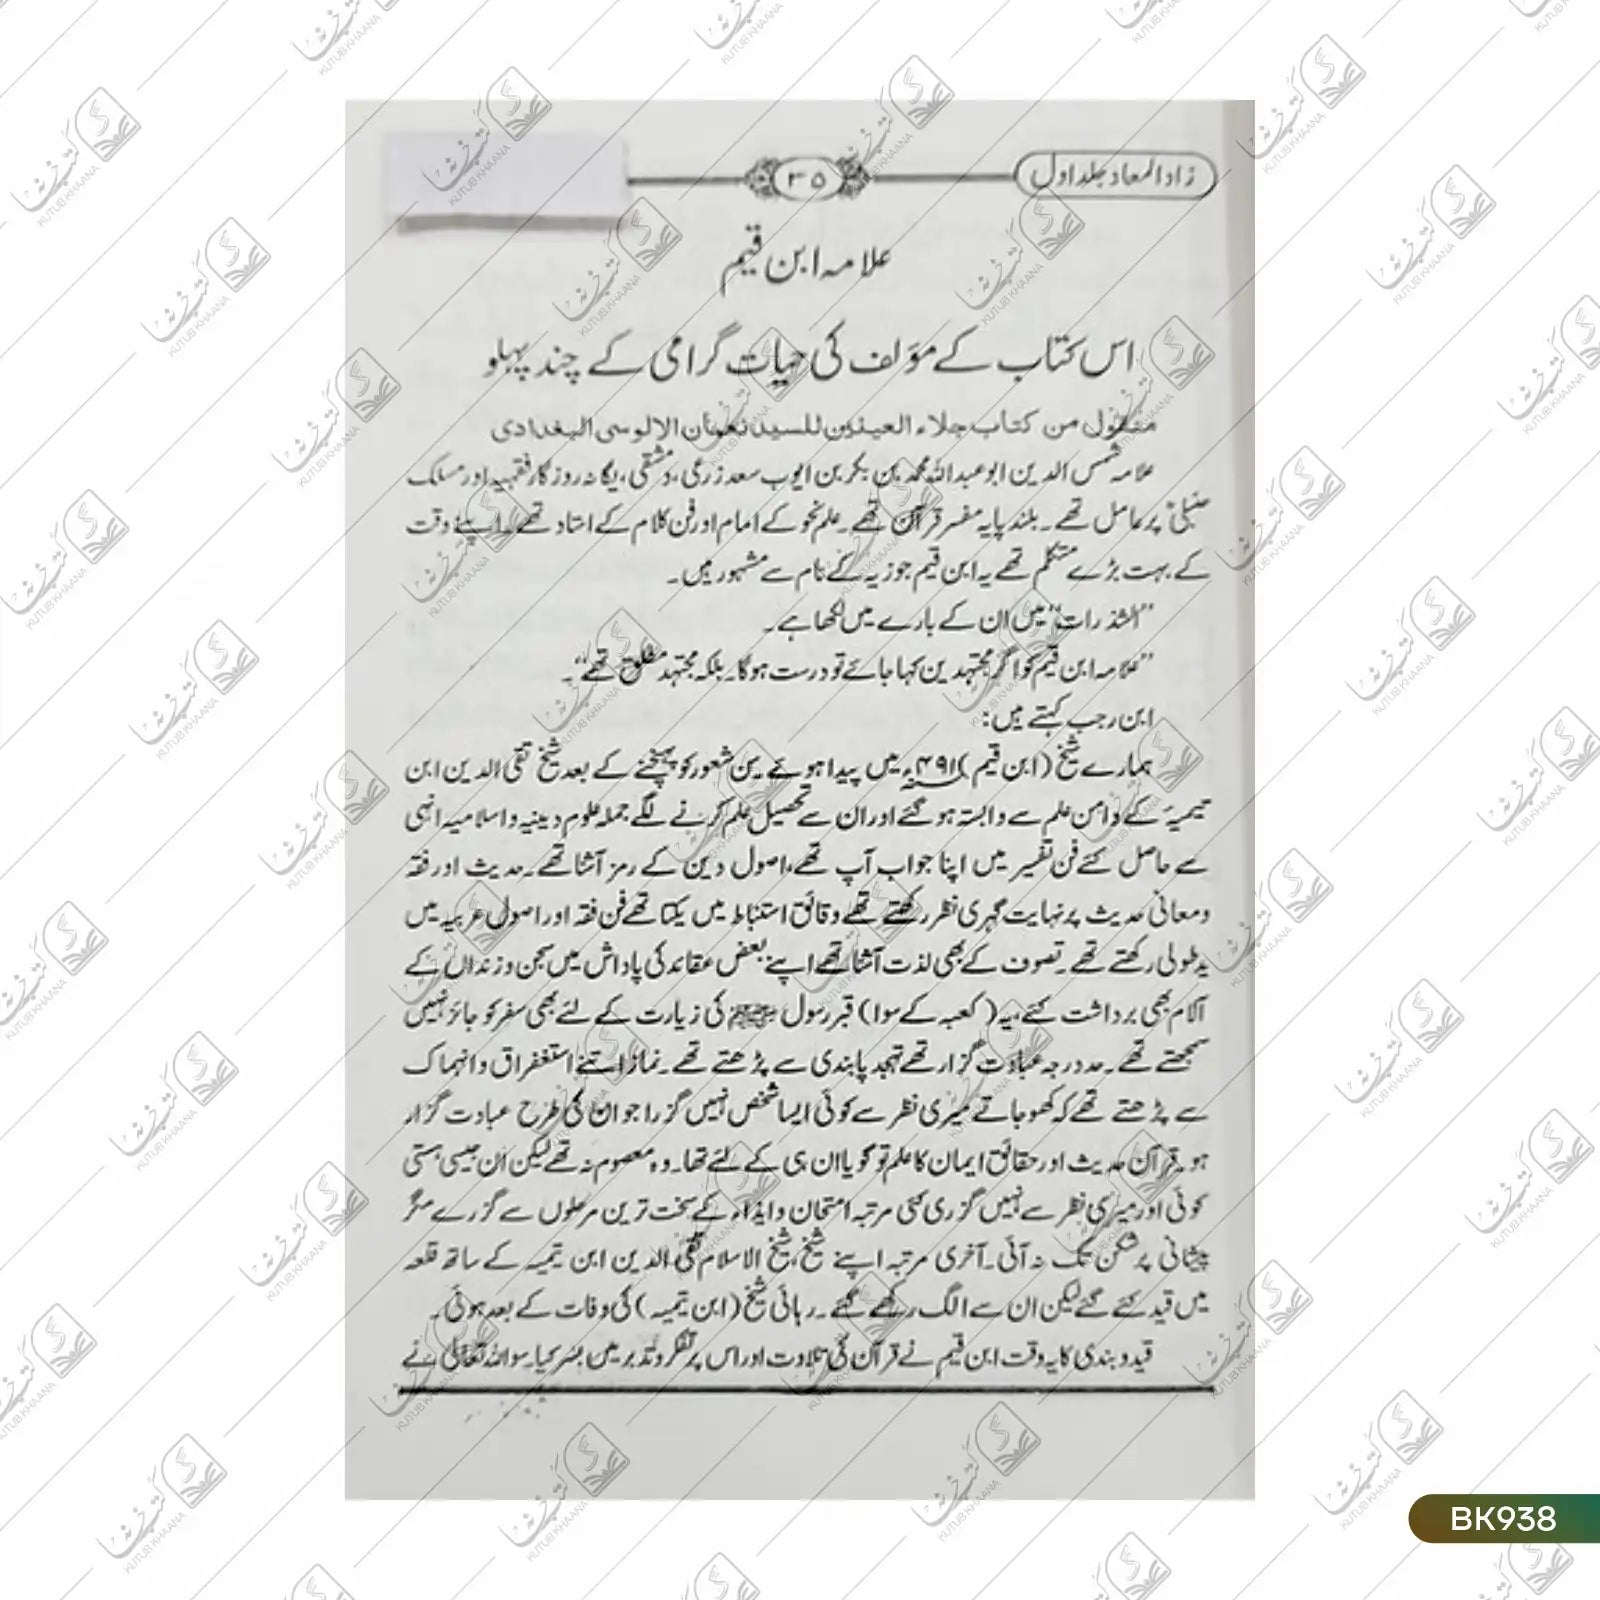 زاد المعاد جلد اول
۳۵
علامہ ابن قیم
اس کتاب کے مؤلف کی حیات گرامی کے چند پہلو
منقول من كتاب جلاء العينين للسيد نعمان الالوسى البغدادى
علامہ شمس الدین ابو عبد اللہ محمد بن بکر بن ایوب سعد زرعی، دمشقی، یگانہ روزگار فقیہہ اور مسلک
حنبلی پر عامل تھے۔ بلند پایہ مفسر قرآن تھے۔ علم نحو کے امام اور فن کلام کے استاد تھے۔ اپنے وقت
کے بہت بڑے متکلم تھے یہ ابن قیم جوزیہ کے نام سے مشہور ہیں۔
"الشذرات" میں ان کے بارے میں لکھا ہے۔
"علامہ ابن قیم کو اگر مجتہدین کہا جائے تو درست ہوگا۔ بلکہ مجتہد مطلق تھے"۔
ابن رجب کہتے ہیں:
ہمارے شیخ (ابن قیم) ۶۹۱ء میں پیدا ہوئے سن شعور کو پہنچنے کے بعد شیخ تقی الدین ابن
تیمیہ کے دامن علم سے وابستہ ہو گئے اور ان سے تحصیل علم کرنے لگے جملہ علوم دینیہ و اسلامیہ انہی
سے حاصل کئے فن تفسیر میں اپنا جواب آپ تھے، اصول دین کے رمز آشنا تھے۔ حدیث اور فقہ
ومعانی حدیث پر نہایت گہری نظر رکھتے تھے دقائق استنباط میں یکتا تھے فن فقہ اور اصول عربیہ میں
ید طولی رکھتے تھے۔ تصوف کے بھی لذت آشنا تھے اپنے بعض عقائد کی پاداش میں سجن و زنداں کے
آلام بھی برداشت کئے، یہ (کعبہ کے سوا) قبر رسول ﷺ کی زیارت کے لئے بھی سفر کو جائز نہیں
سمجھتے تھے۔ حد درجہ عبادت گزار تھے تہجد پابندی سے پڑھتے تھے۔ نماز اتنے استغفراق و انہماک
سے پڑھتے تھے کہ کھو جاتے میری نظر سے کوئی ایسا شخص نہیں گزرا جو ان کی طرح عبادت گزار
ہو۔ قرآن حدیث اور حقائق ایمان کا علم تو گویا ان ہی کے لئے تھا۔ وہ معصوم نہ تھے لیکن اُن جیسی ہستی
کوئی اور میری نظر سے نہیں گزری کئی مرتبہ امتحان و ایذاء کے سخت ترین مرحلوں سے گزرے مگر
پیشانی پر شکن تک نہ آئی۔ آخری مرتبہ اپنے شیخ، شیخ الاسلام تقی الدین ابن تیمیہ کے ساتھ قلعہ
میں قید کئے گئے لیکن ان سے الگ رکھے گئے۔ رہائی شیخ (ابن تیمیہ) کی وفات کے بعد ہوئی۔
قید و بندی کا یہ وقت ابن قیم نے قرآن کی تلاوت اور اس پر تفکر و تدبر میں بسر کیا۔ سو اللہ تعالیٰ نے
BK938
کتب خانہ
KUTUB KHAANA